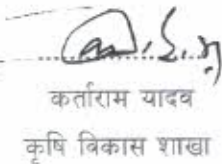 कर्ताराम यादव
कृषि विकास शाखा